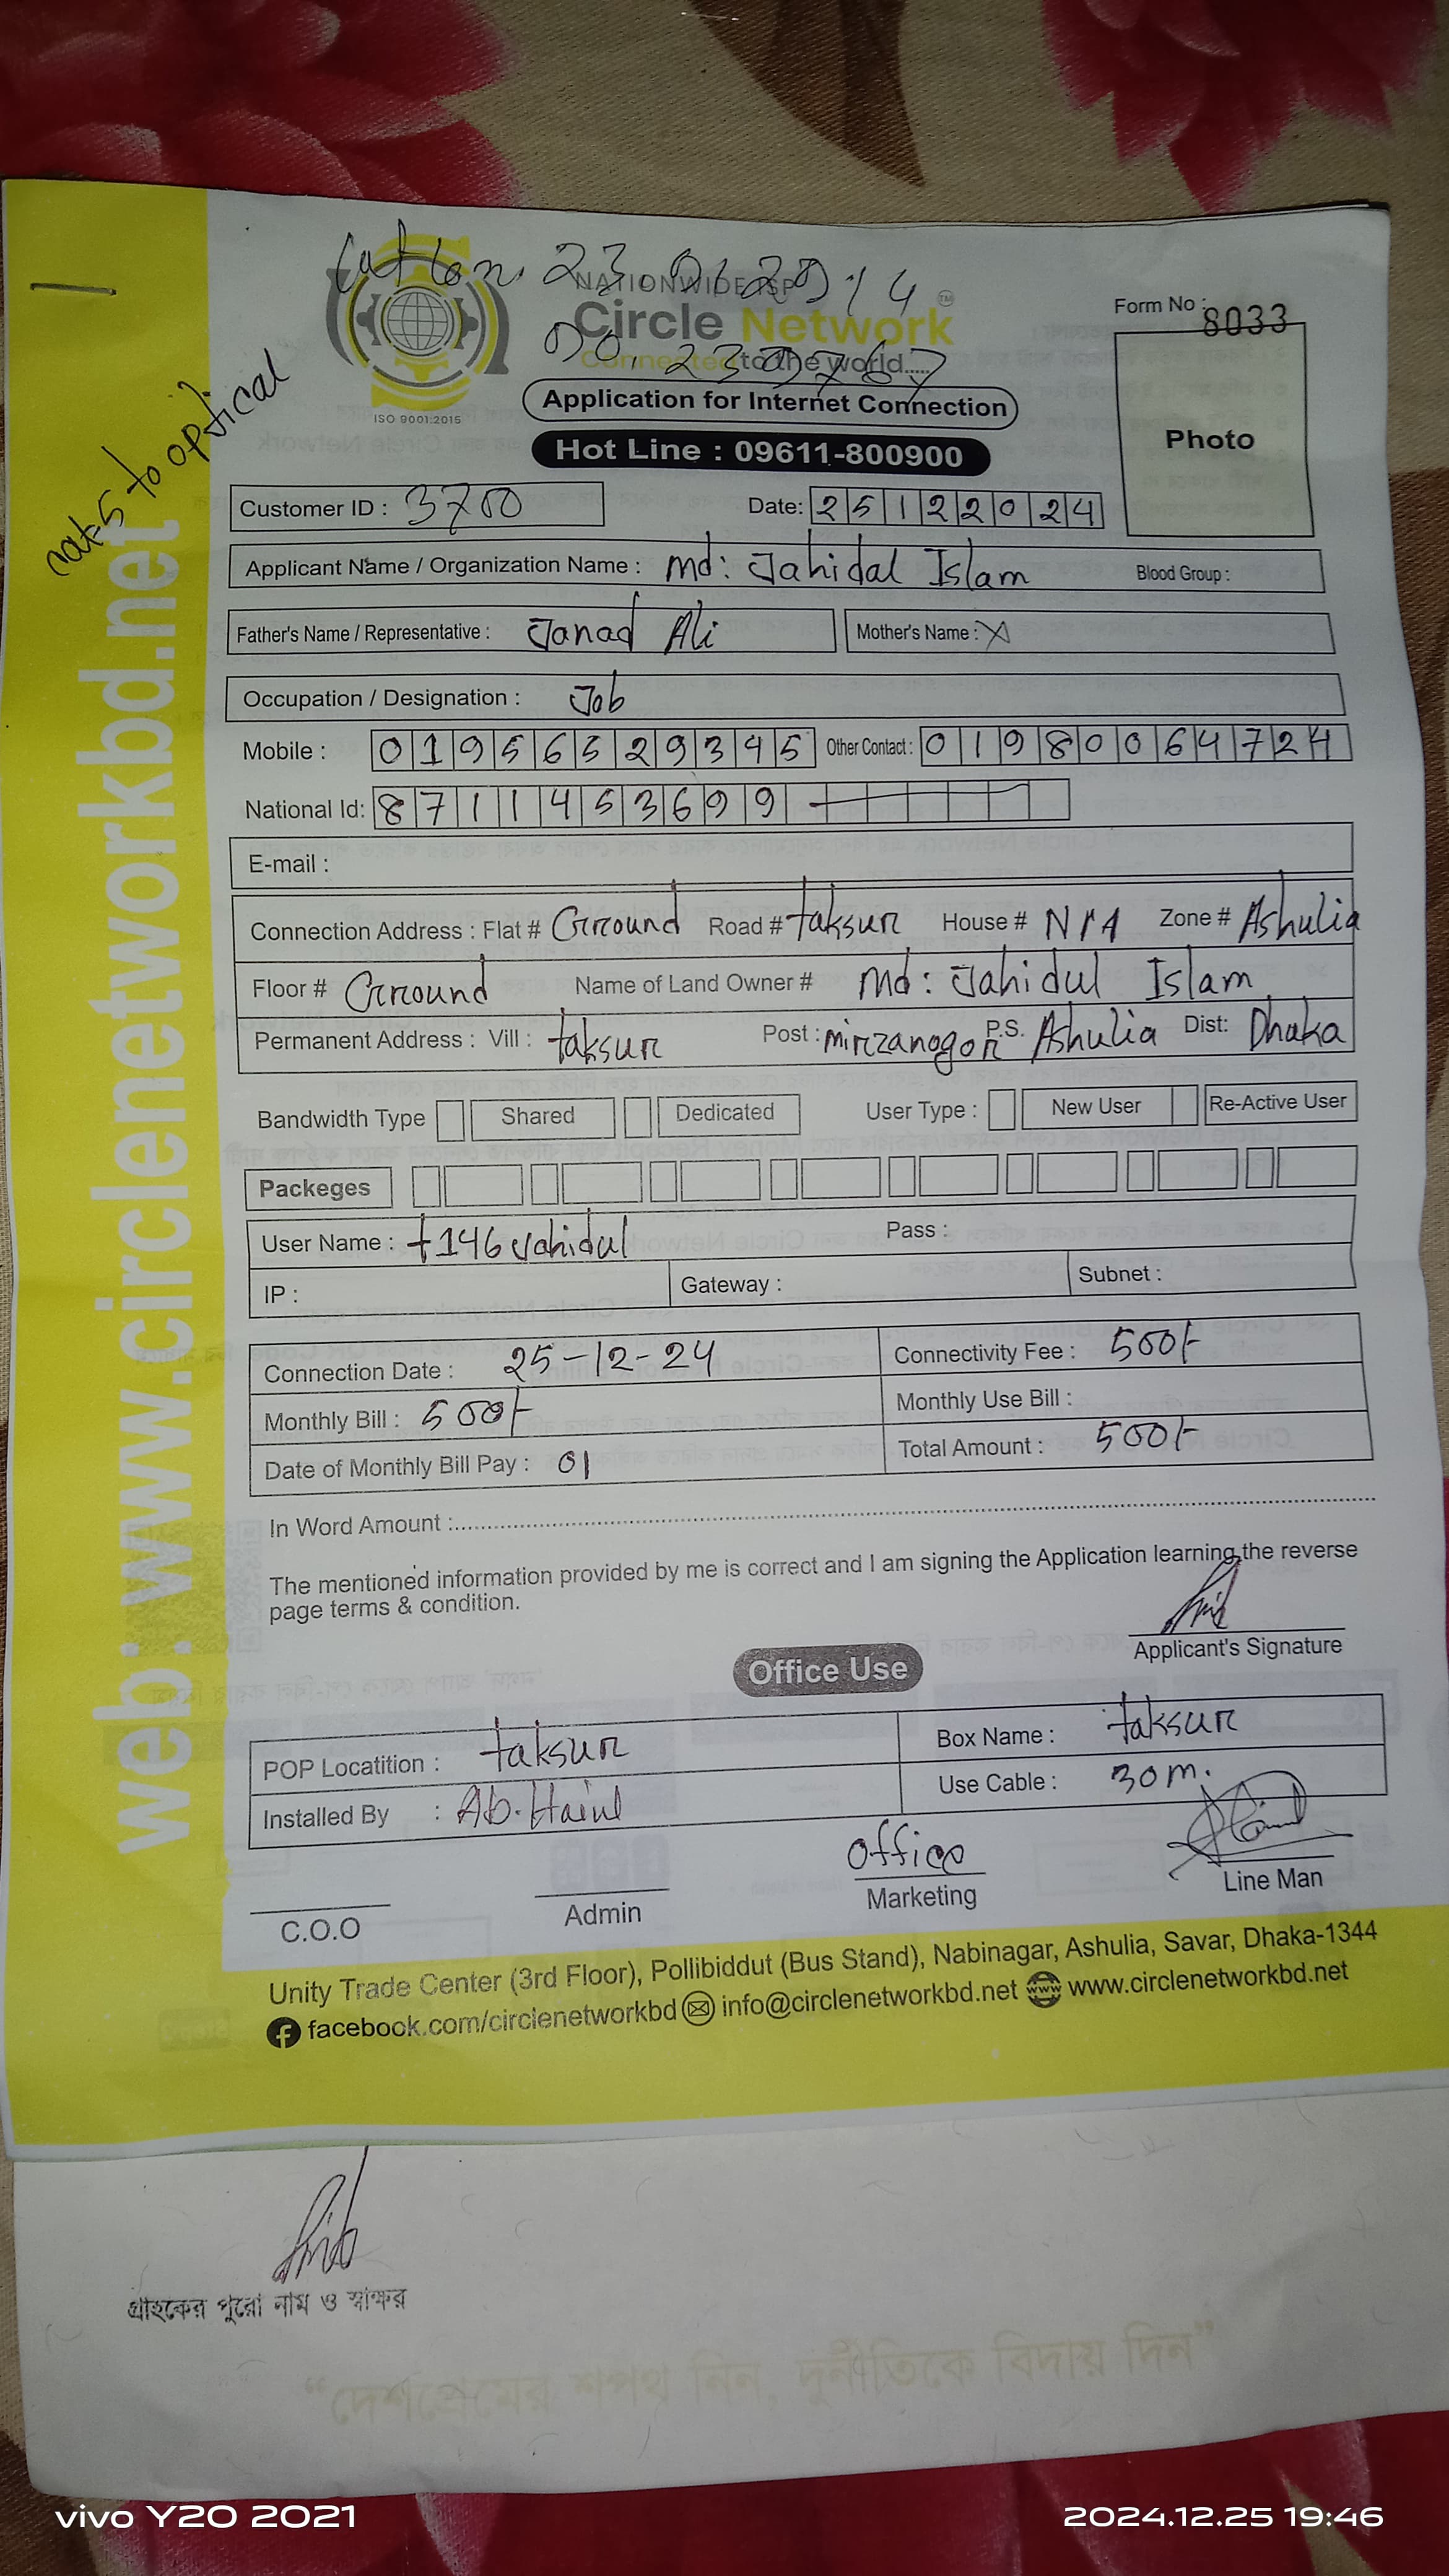 NATIONWIDE ISP
Circle Network TM
Connected to the world.....
ISO 9001:2015
Form No : 8033
Photo
Application for Internet Connection
Hot Line : 09611-800900
cat-5 to optical
web: www.circlenetworkbd.net
Customer ID : 3700 Date: 25122024
Applicant Name / Organization Name : md: Jahidal Islam Blood Group :
Father's Name / Representative : Janad Ali Mother's Name : X
Occupation / Designation : Job
Mobile : 01956529345 Other Contact : 01980064724
National Id: 8711453699
E-mail :
Connection Address : Flat # Ground Road # taksur House # N/A Zone # Ashulia
Floor # Ground Name of Land Owner # Md: Jahidul Islam
Permanent Address : Vill : taksur Post : mirzanogor P.S. Ashulia Dist: Dhaka
Bandwidth Type Shared Dedicated User Type : New User Re-Active User
Packeges
User Name : t146Jahidul Pass :
IP : Gateway : Subnet :
Connection Date : 25-12-24 Connectivity Fee : 500/-
Monthly Bill : 500/- Monthly Use Bill :
Date of Monthly Bill Pay : 01 Total Amount : 500/-
In Word Amount :
The mentioned information provided by me is correct and I am signing the Application learning the reverse
page terms & condition.
Applicant's Signature
Office Use
POP Locatition : taksur Box Name : taksur
Installed By : Use Cable : 30m.
C.O.O Admin Office Marketing Line Man
Unity Trade Center (3rd Floor), Pollibiddut (Bus Stand), Nabinagar, Ashulia, Savar, Dhaka-1344
facebook.com/circlenetworkbd info@circlenetworkbd.net www.circlenetworkbd.net
গ্রাহকের পুরো নাম ও স্বাক্ষর
“দেশপ্রেমের শপথ নিন, দুর্নীতিকে বিদায় দিন”
vivo Y20 2021 2024.12.25 19:46